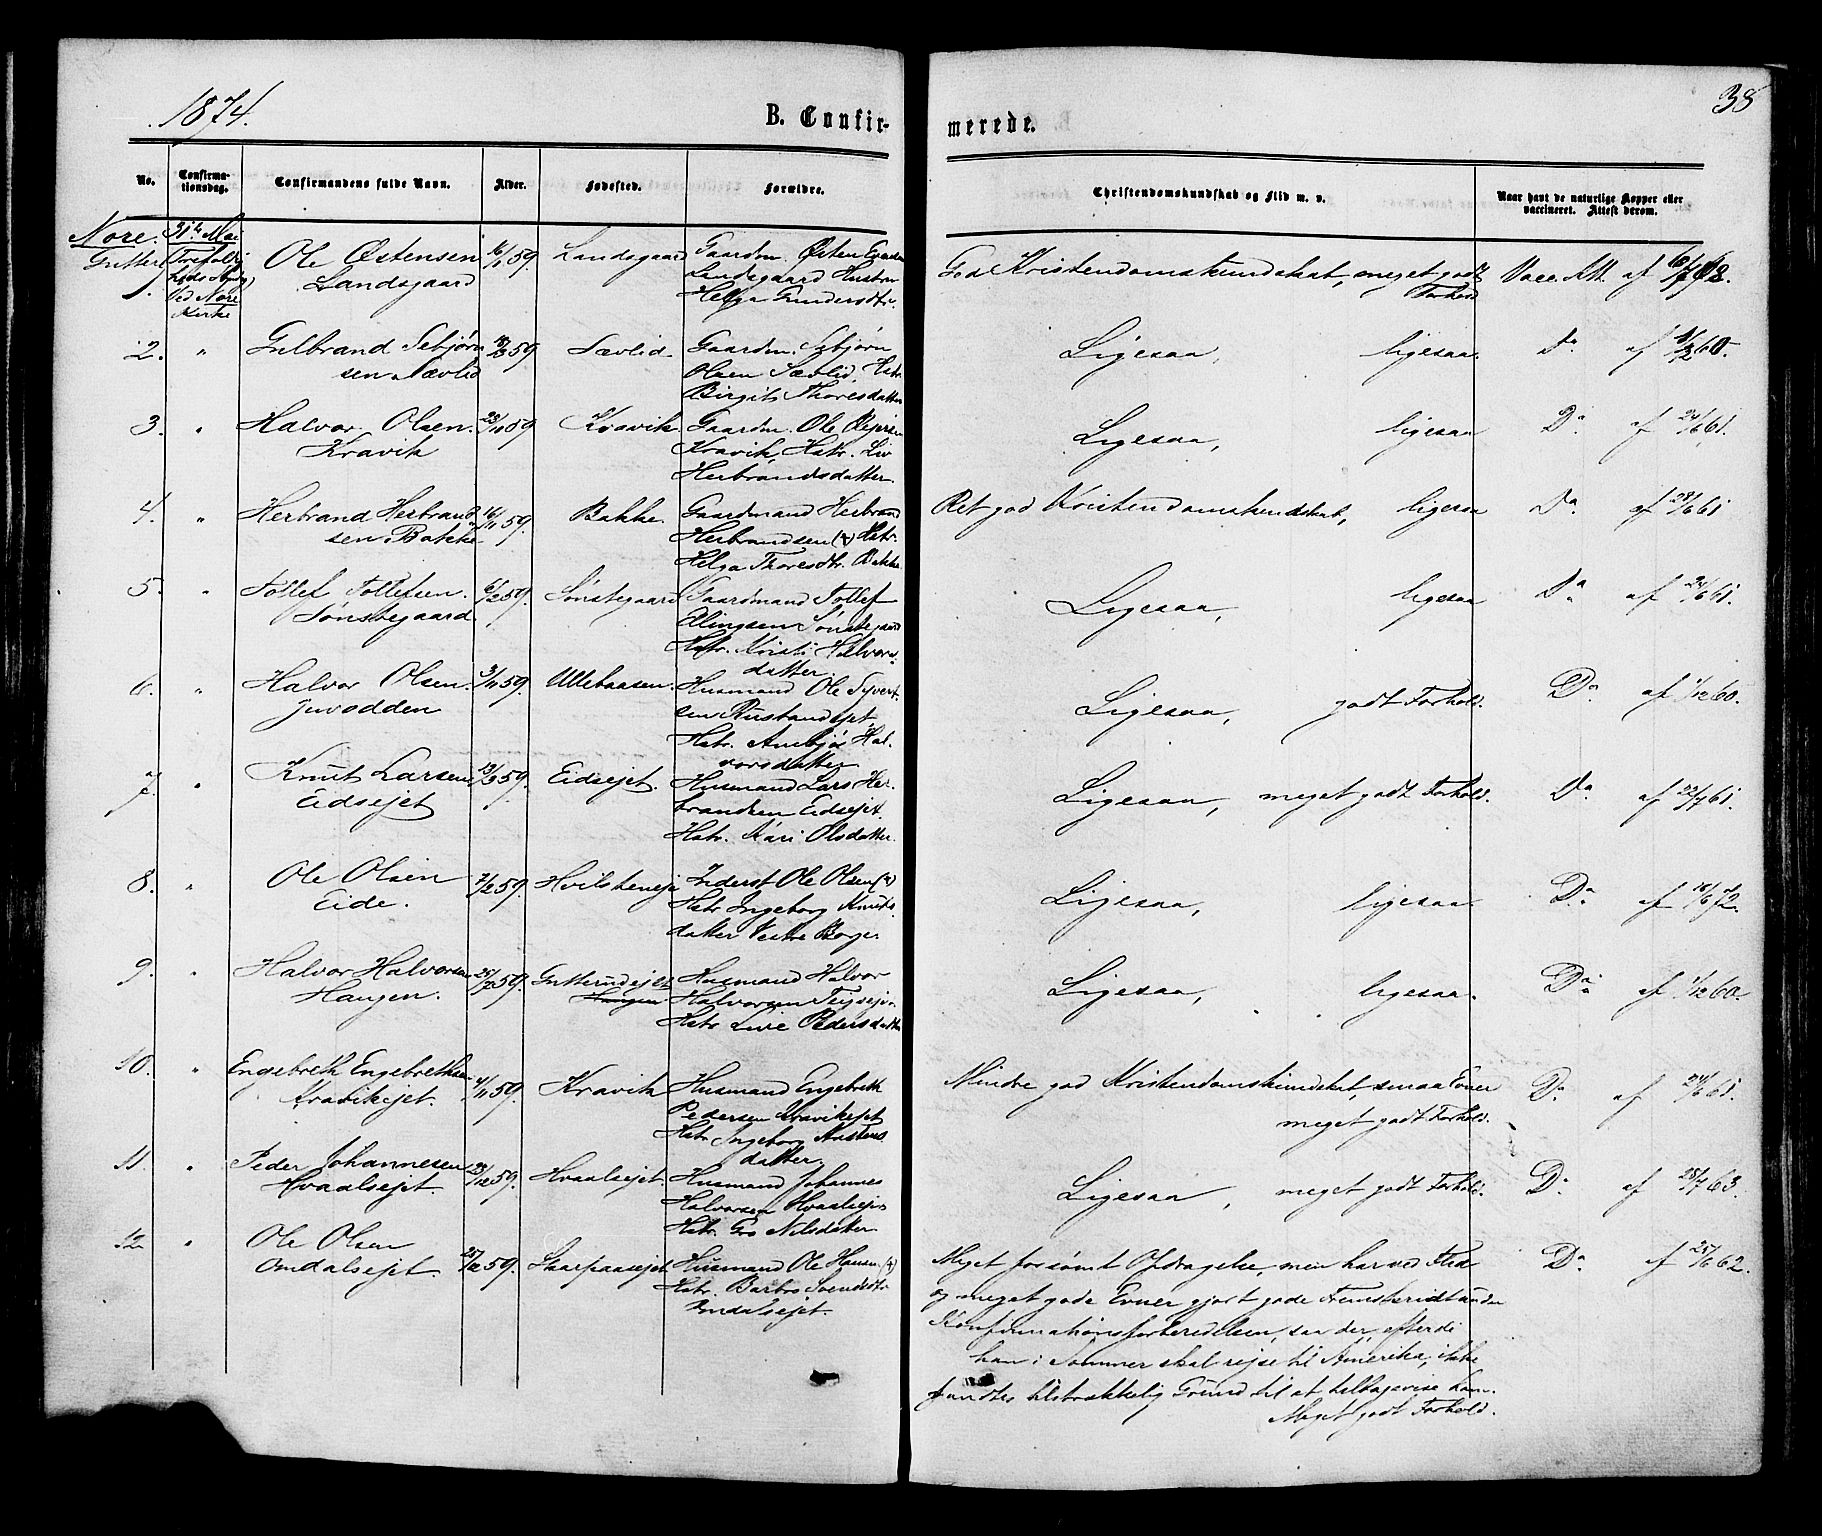 1874.
B. Confir-
merede.
38
No.
Confirma-
tionsdag.
Confirmandens fulde Navn.
Alder.
Fødested.
Forældre.
Christendomskundskab og Flid m. v.
Naar havt de naturlige Kopper eller
vaccineret. Attest derom.
Nore.
Gutter
31te Mai
Trefoldig
heds Søndag
Ved Nore
Kirke
1. Ole Østensen 16/1 59. Landsgaard Gaardm. Østen
Landsgaard Landsgaard Hustru
Helga Gundersdtr.
God Kristendomskundskab, meget godt
Forhold
Vacc. Att. af
2. " Gulbrand Sebjørn 59. Sævlid. Gaardm. Sebjørn
sen Sævlid Olsen Sævlid, Hstr.
Birgit Thoresdatter
Ligesaa, ligesaa. Do. af 60.
3. " Halvor Olsen 59 Kravik. Gaardm. Ole
Kravik Kravik, Hstr. Liv
Herbrandsdatter.
Ligesaa, ligesaa Do. af 24/6 61.
4. " Herbrand Herbrand 16/11 59. Bakke. Gaardmand Herbrand
sen Bakke Herbrandsen (†) Hstr.
Helga Thoresdtr. Bakke
Ret god Kristendomskundskab, ligesaa Do. af 28/6 61
5. " Tollef Tollefsen 6/2 59. Sønstegaard Gaardmand Tollef
Sønstegaard Sønstegaard
Hstr. Kristi Halvors-
datter
Ligesaa, ligesaa Do. af 24/6 61.
6. " Halvor Olsen 3/11 59. Ullebaasen. Husmand Ole Syvert-
Juvodden sen Rustandsejet,
Hstr. Hal-
vorsdatter
Ligesaa, godt Forhold. Do. af 1/12 60.
7. " Knut Larsen 13/3 59. Eidsejet. Husmand Lars Her-
Eidsejet brandsen Eidsejet.
Hstr. Kari Olsdatter.
Ligesaa, meget godt Forhold. Do. af 22/7 61.
8. " Ole Olsen 7/2 59. Inderst Ole Olsen (†)
Eide. Hstr Ingeborg Knuts
datter
Ligesaa, ligesaa. Do. af 18/6 72.
9. " Halvor Halvorsen 59. Gutterudejet Husmand Halvor
Haugen. Haugen Halvorsen
Hstr Live Pedersdatter
Ligesaa, ligesaa. Do. af 1/12 60.
10. " Engebreth Engebrethsen 4/11 59. Kravik Husmand Engebreth
Kravikejet. Pedersen Kravikejet
Hstr Ingeborg
datter
Mindre god Kristendomskundskab, smaa Evner
meget godt Forhold.
Do. af 24/6 61.
11. " Peder Johannesen 59. Hvaalsejet. Husmand Johannes
Hvaalsejet. Halvorsen Hvaalsejet
Hstr. Gro Nilsdatter
Ligesaa, meget godt Forhold. Do. af 28/7 63.
12 " Ole Olsen 59. Husmand Ole Hansen (†)
Omdalsejet. Hstr. Barbro Svendsdtr.
Omdalsejet.
Meget forsømt Opdragelse, men har ved Flid
og meget gode Evner gjort gode Fremskridt under
Konfirmationsforberedelsen, saa der, efterdi
han i Sommer skal rejse til Amerika, ikke
fandtes tilstrækkelig Grund til at tilbagevise ham.
Meget godt Forhold.
Do. af 25/6 62.